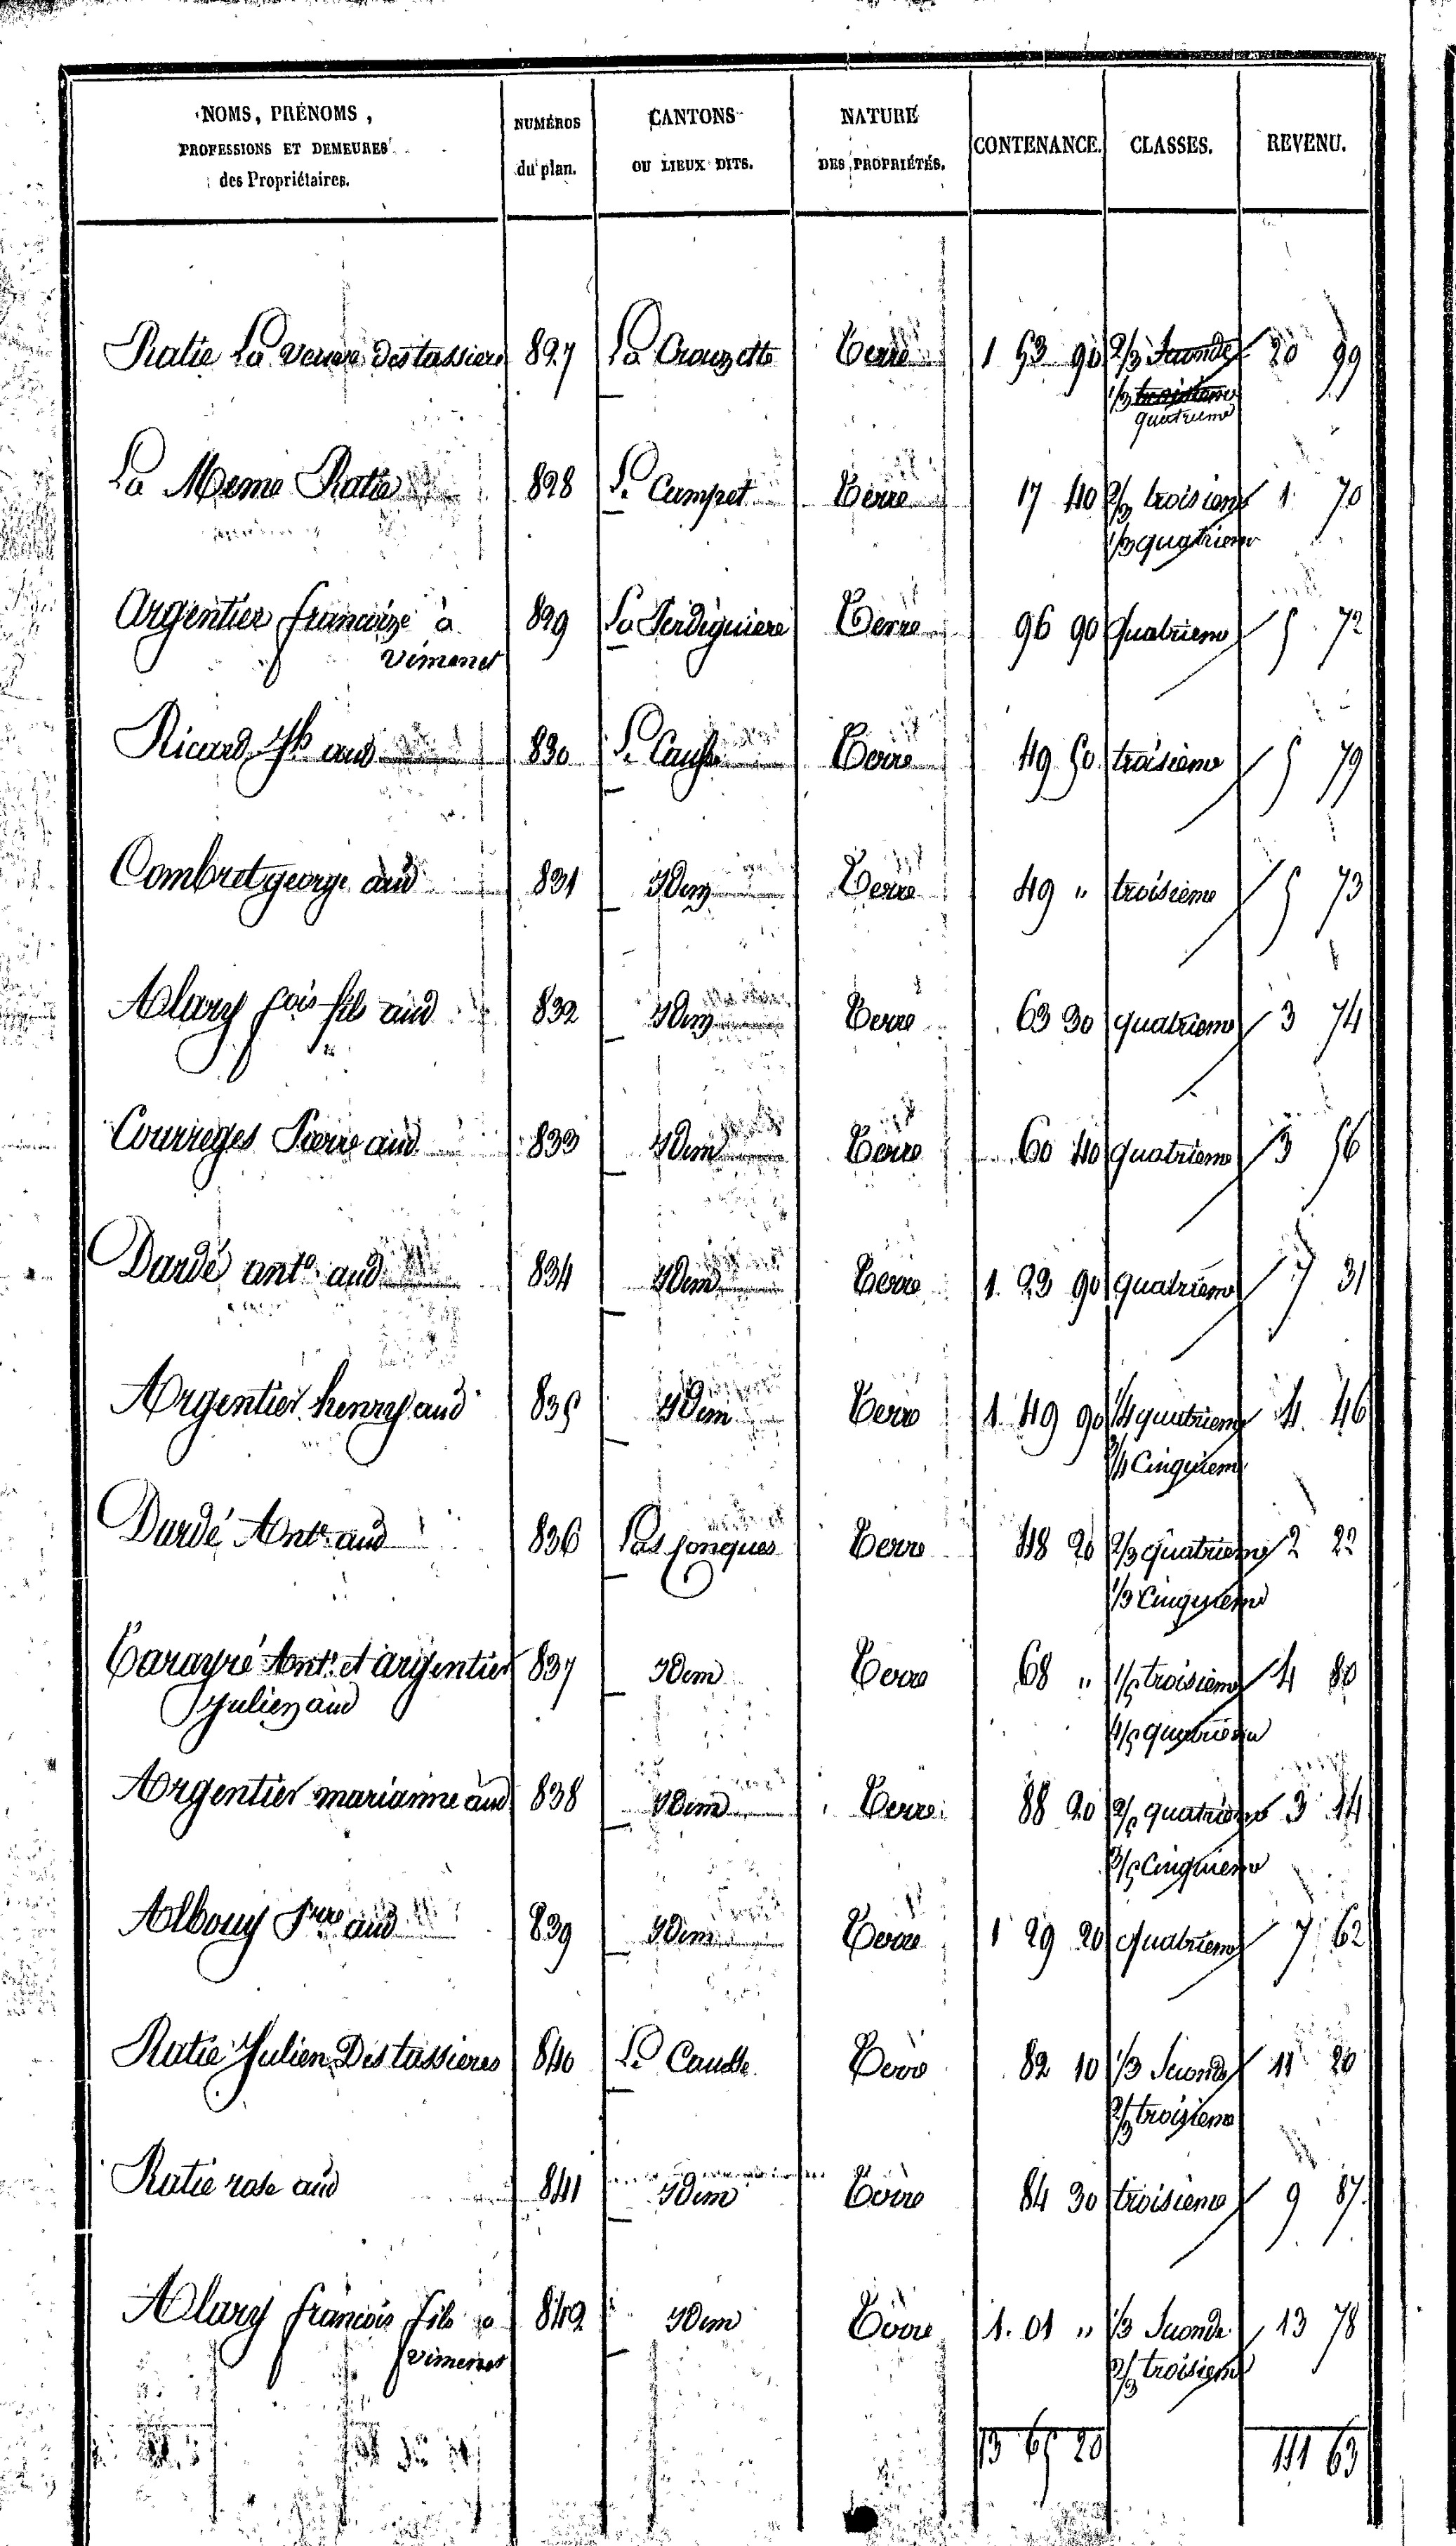 NOMS, PRÉNOMS, PROFESSIONS ET DEMEURES des Propriétaires. NUMÉROS du plan. CANTONS OU LIEUX DITS. NATURE DES PROPRIÉTÉS. CONTENANCE. CLASSES. REVENU.
Ratie La veuve Destassieres 827 La Crouzette Terre 1 53 90 2/3 Seconde 20 99
1/3 troisieme
quatrieme
La Meme Ratie 828 Le Campet Terre 17 40 2/3 troisieme 1 70
1/3 quatrieme
Argentier francoize à 829 La Serdiguiere Terre 96 90 quatrieme 5 72
Vimenet
Ricard Jh aud 830 Le Causse Terre 49 50 troisieme 5 79
Combret george aud 831 Idem Terre 49 " troisieme 5 73
Alary fois fils aud 832 Idem Terre 63 30 quatrieme 3 74
Courreges Pierre aud 833 Idem Terre 60 40 quatrieme 3 56
Dardé ante aud 834 Idem Terre 1 23 90 quatrieme 7 31
Argentier henry aud 835 Idem Terre 1 49 90 1/4 quatrieme 4 46
3/4 Cinquieme
Dardé Ante aud 836 Las jonques Terre 48 20 2/3 quatrieme 2 22
1/3 Cinquieme
Carayré Ante et argentier 837 Idem Terre 68 " 1/5 troisieme 4 80
Julien aud 4/5 quatrieme
Argentier marianne aud 838 Idem Terre 88 20 2/5 quatrieme 3 14
3/5 Cinquieme
Albouy Pierre aud 839 Idem Terre 1 29 20 quatrieme 7 62
Ratie Julien Destassieres 840 Le Causse Terre 82 10 1/3 Seconde 11 20
2/3 troisieme
Ratie rose aud 841 Idem Terre 84 30 troisieme 9 87
Alary francois fils a 842 Idem Terre 1 01 " 1/3 Seconde 13 78
vimenet 2/3 troisieme
13 65 20 111 63